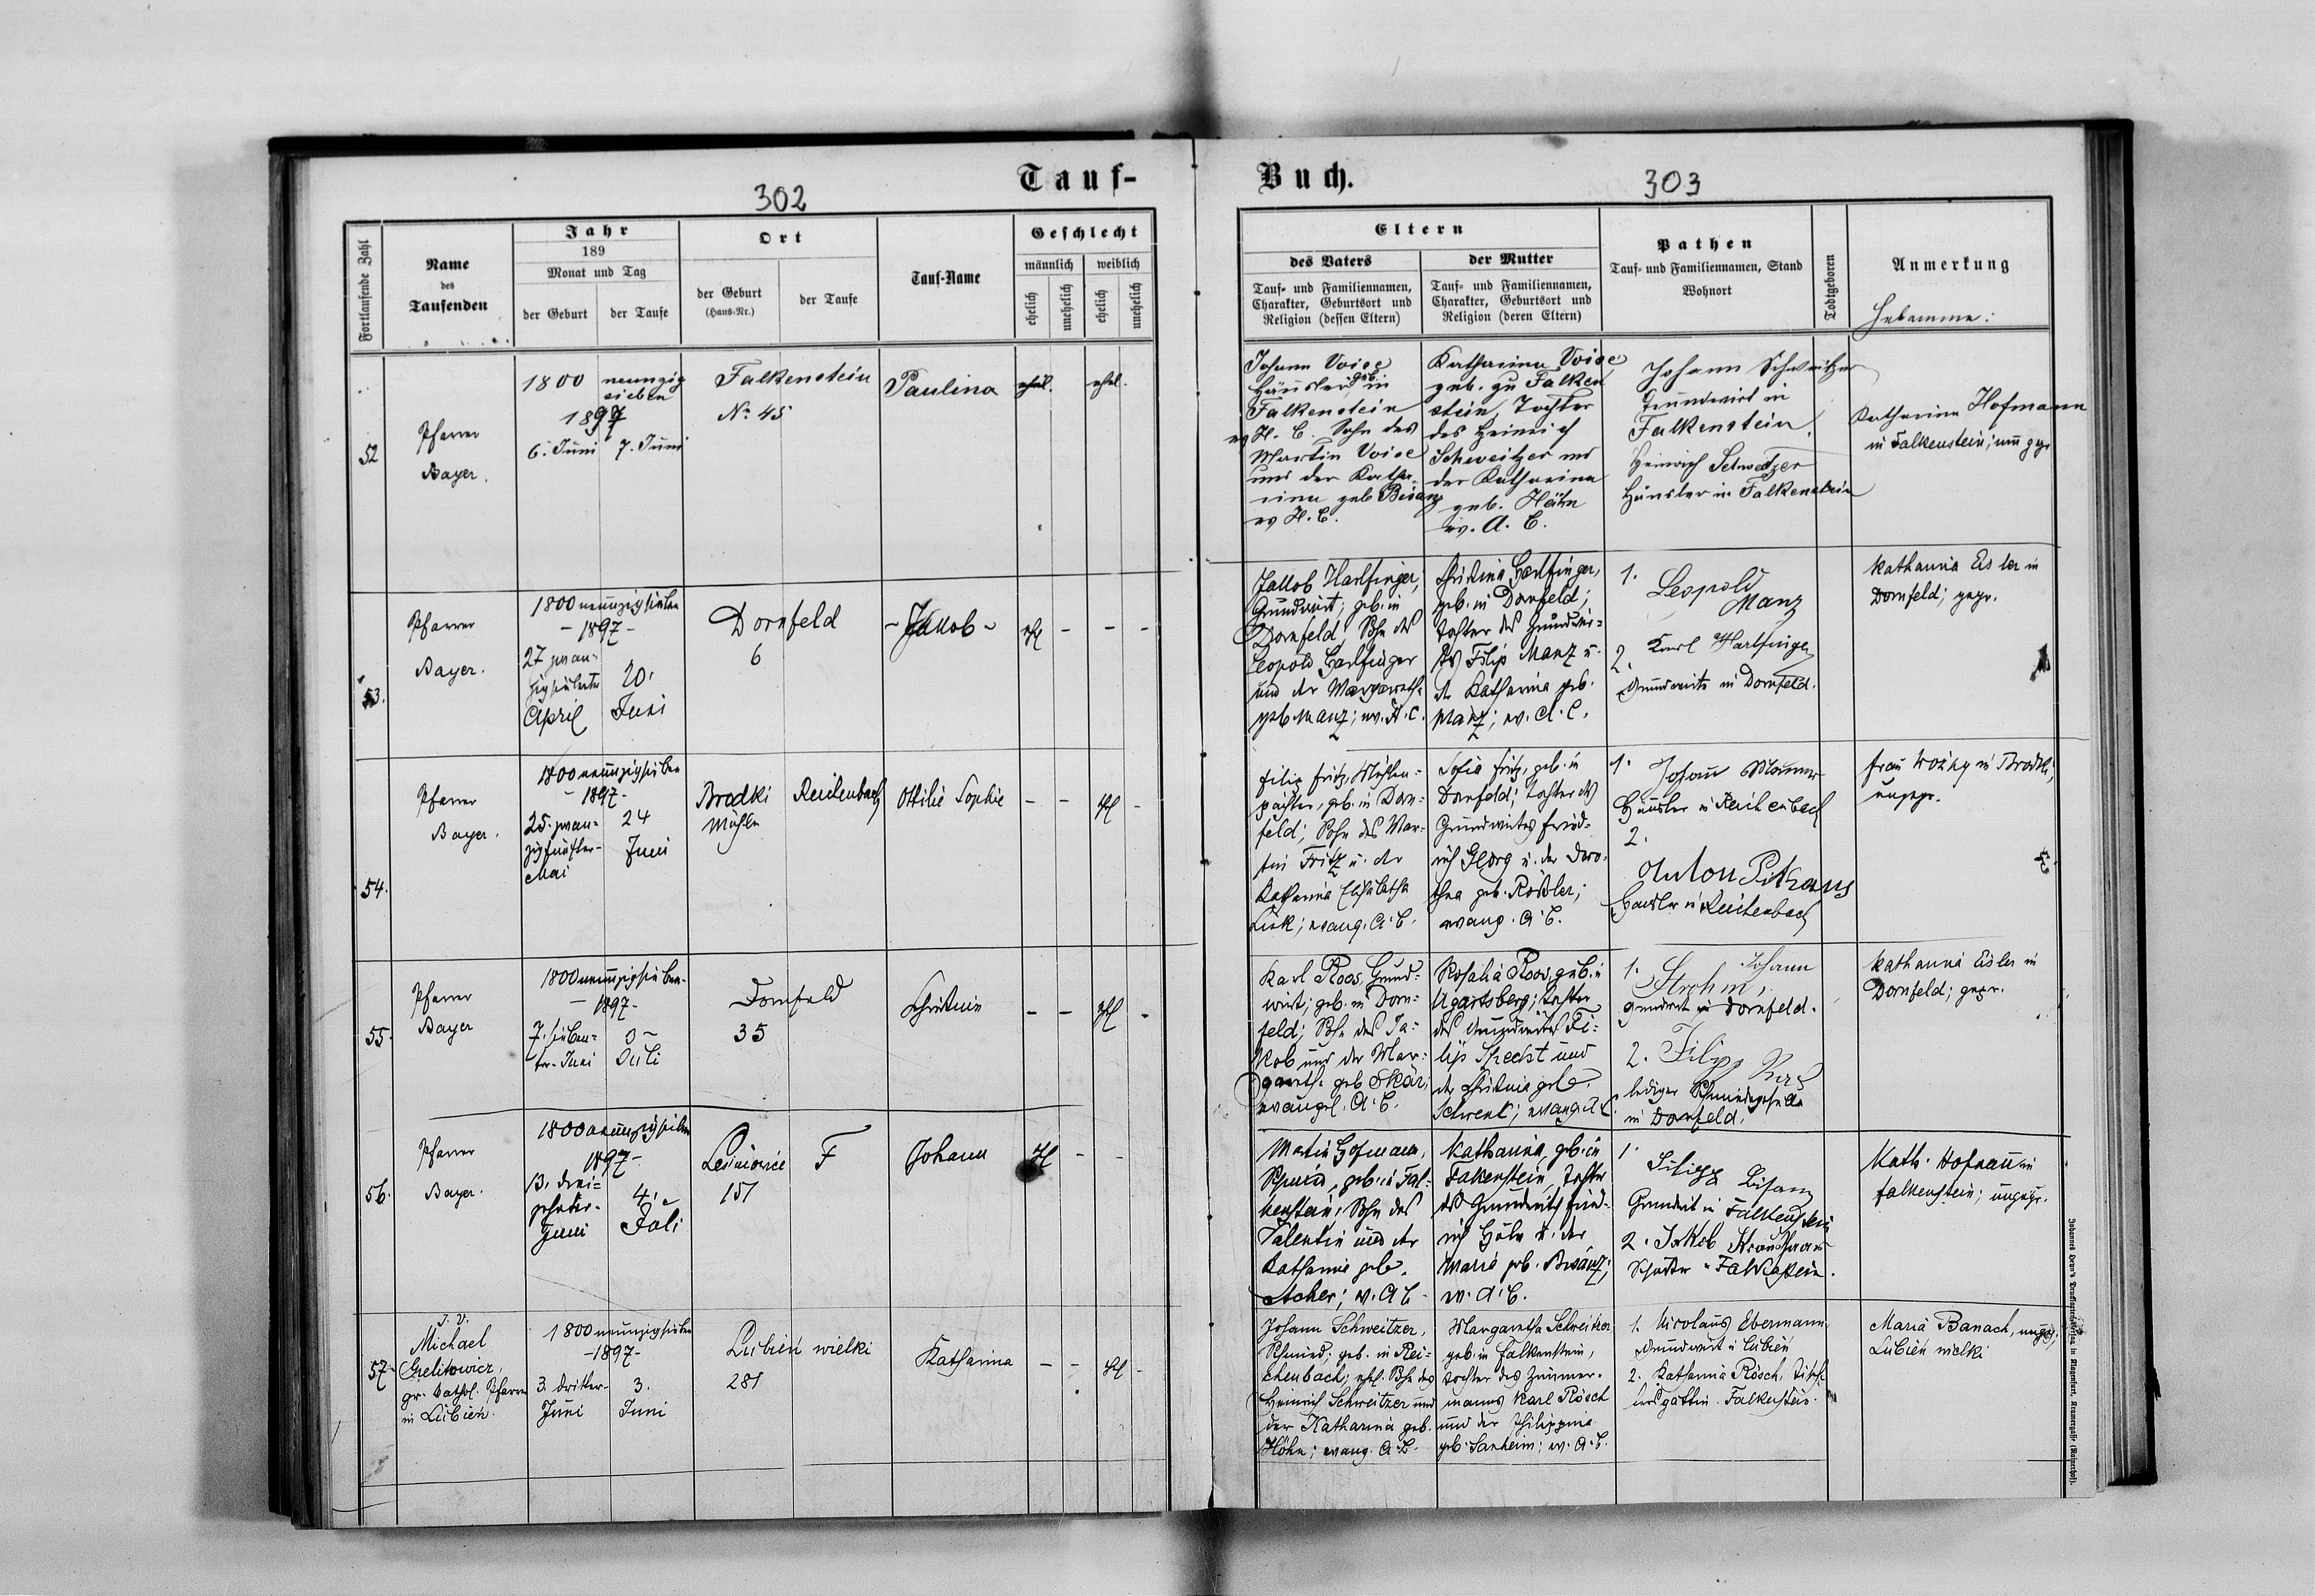 Tauf-
302
Fortlaufende Zahl
Name
des
Taufenden
Jahr
189
Monat und Tag
der Geburt
der Taufe
Ort
der Geburt
(Haus-Nr.)
der Taufe
Tauf-Name
Geschlecht
männlich
weiblich
ehelich
unehelich
ehelich
unehelich
52
Pfarrer
Bayer.
1800 neunzig
sieben
1897
6. Juni
7. Juni
Falkenstein
No. 45
Paulina
ehel.
ehel.
53.
Pfarrer
Bayer.
1800 neunzigsieben
- 1897 -
27 zwan-
April
20.
Juni
Dornfeld
6
- Jakob -
- - -
54.
Pfarrer
Bayer.
1800 neunzigsieben
- 1897 -
25. zwan-
zigfünfter-
Mai
24
Juni
Brodki
Mühle
Reichenbach
Ottilie Sophie
- -
-
55.
Pfarrer
Bayer
1800 neunzigsieben-
- 1897 -
7. sieben-
ter Juni
Juli
Dornfeld
35
Christine
- -
-
56.
Pfarrer
Bayer.
1800 neunzigsieben
1897 -
13. drei-
zehnter-
Juni
4.
Juli
Lesniowice
151
F
Johann
- -
57.
I. V.
Michael
gr. kathol. Pfarrer
in Lubien.
1800 neunzigsieben
- 1897 -
3. dritter-
Juni
3.
Juni
Lubień wielki
281
Katharina
- -
-
Buch.
303
Eltern
des Vaters
Tauf- und Familiennamen,
Charakter, Geburtsort und
Religion (dessen Eltern)
der Mutter
Tauf- und Familiennamen,
Charakter, Geburtsort und
Religion (deren Eltern)
Pathen
Tauf- und Familiennamen, Stand
Wohnort
Todtgeboren
Anmerkung
Hebamme:
Johann Voise
Häusler geb. in
Falkenstein
ev H. C. Sohn des
Martin Voise
und der Katha-
rina geb Bisanz
ev H. C.
Katharina Voise
geb. zu Falken
stein, Tochter
des Heinrich
Schweitzer und
der Katharina
geb. Höhn
ev. A. C.
Johann Schweitzer
Grundwirt in
Falkenstein.
Heinrich Schweitzer
Häusler in Falkenstein
Katharina Hofmann
in Falkenstein; ungepr.
Jakob Harlfinger,
Grundwirt; geb. in
Dornfeld, Sohn des
Leopold Harlfinger
und der Margareth.
geb. Manz; ev. A. C.
Christina Harlfinger,
geb. in Dornfeld;
Tochter des Grundwir-
tes Filip Manz u.
der Katharina geb.
Manz; ev. A. C.
1. Leopold
Manz
2. Karl Harlfinger
Grundwirte in Dornfeld.
Katharina Eisler in
Dornfeld; gepr.
Filip Fritz, Mühlen-
pächter, geb. in Dorn-
feld; Sohn des Mar-
tin Fritz u. der
Katharina Elisabetha
evang. A. C.
Sofia Fritz, geb. in
Dornfeld; Tochter des
Grundwirtes Fried-
rich Georg u. der Doro-
thea geb. Rößler;
evang. A. C.
1. Johann
Häusler in Reichenbach
2.
Anton
Häusler in Reichenbach
Frau Woźny in Brodki,
ungepr.
Karl Roos, Grund-
wirt; geb. in Dorn-
feld; Sohn des Ja-
kob und der Mar-
gareth. geb.
evangel. A. C.
Rosalia Roos, geb. in
Ugartsberg; Tochter
des Grundwirtes Fi-
lip Specht und
der Christine geb.
Schwenk; evang. A. C.
1. Johann
Strohm,
Grundwirt in Dornfeld.
2. Filipp
lediger Schmiedgeselle
in Dornfeld.
Katharina Eisler in
Dornfeld; gepr.
Martin Hofmann,
Schmied, geb. in Fal-
kenstein, Sohn des
Valentin und der
Katharina geb.
Acher; ev. A C
Katharina, geb. in
Falkenstein, Tochter
des Grundwirts Fried-
rich Höhn u. der
Maria geb. Bisanz;
ev. A. C.
1.
Filipp Bisanz
Grundwirt in Falkenstein
2. Jakob
Falkenstein.
Kath. Hofmann in
Falkenstein; ungepr.
Johann Schweitzer,
Schmied, geb. in Rei-
chenbach; ehel. Sohn des
Heinrich Schweitzer und
der Katharina geb.
Höhn; evang. A. C.
Margaretha Schweitzer
geb. in Falkenstein,
Tochter des Zimmer-
manns Karl Rösch
und der Philippine
geb. Sanheim; ev. A. C.
1. Nicolaus Ebermann,
Grundwirt in Lubień
2. Katharina Rösch, Tisch-
lersgattin. Falkenstein.
Maria Banach, ungepr.,
Lubień wielki